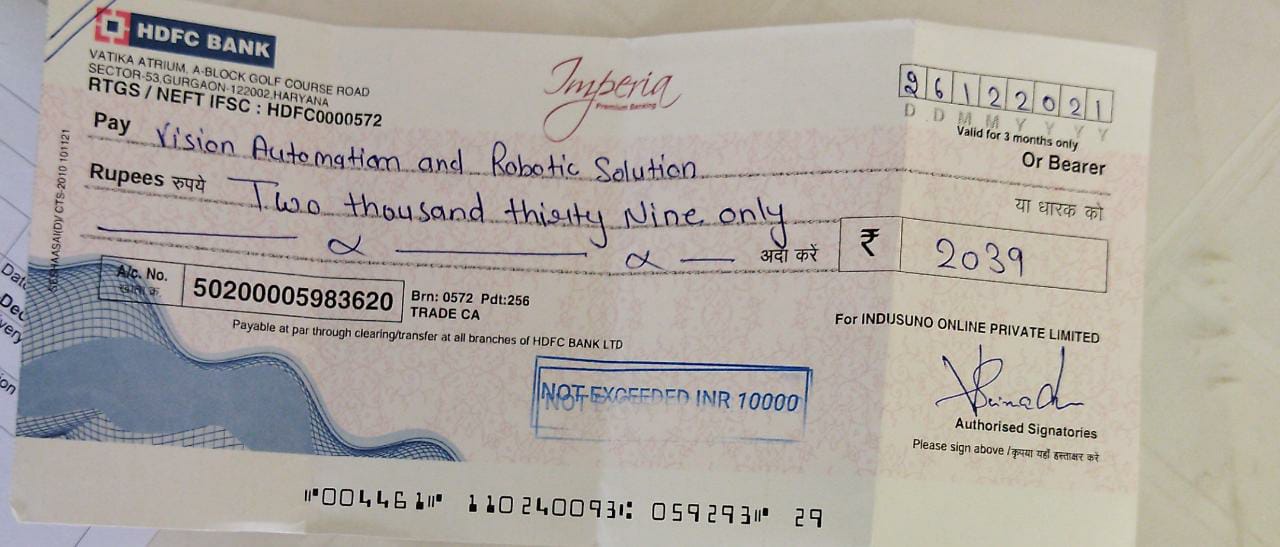 HDFC BANK
VATIKA ATRIUM, A-BLOCK GOLF COURSE ROAD
SECTOR-53,GURGAON-122002,HARYANA
RTGS / NEFT IFSC : HDFC0000572
Imperia
Premium Banking
26122021
D D M M Y Y Y Y
Valid for 3 months only
Pay Vision Automation and Robotic Solution
Or Bearer
या धारक को
Rupees रुपये Two thousand thirty Nine only
अदा करें ₹ 2039
A/c. No.
खाता क्र.
50200005983620
Brn: 0572 Pdt:256
TRADE CA
Payable at par through clearing/transfer at all branches of HDFC BANK LTD
For INDUSUNO ONLINE PRIVATE LIMITED
NOT EXCEEDED INR 10000
Authorised Signatories
Please sign above / कृपया यहाँ हस्ताक्षर करें
CTS-2010 101121
⑈004461⑈ 110240093⑆ 059293⑈ 29